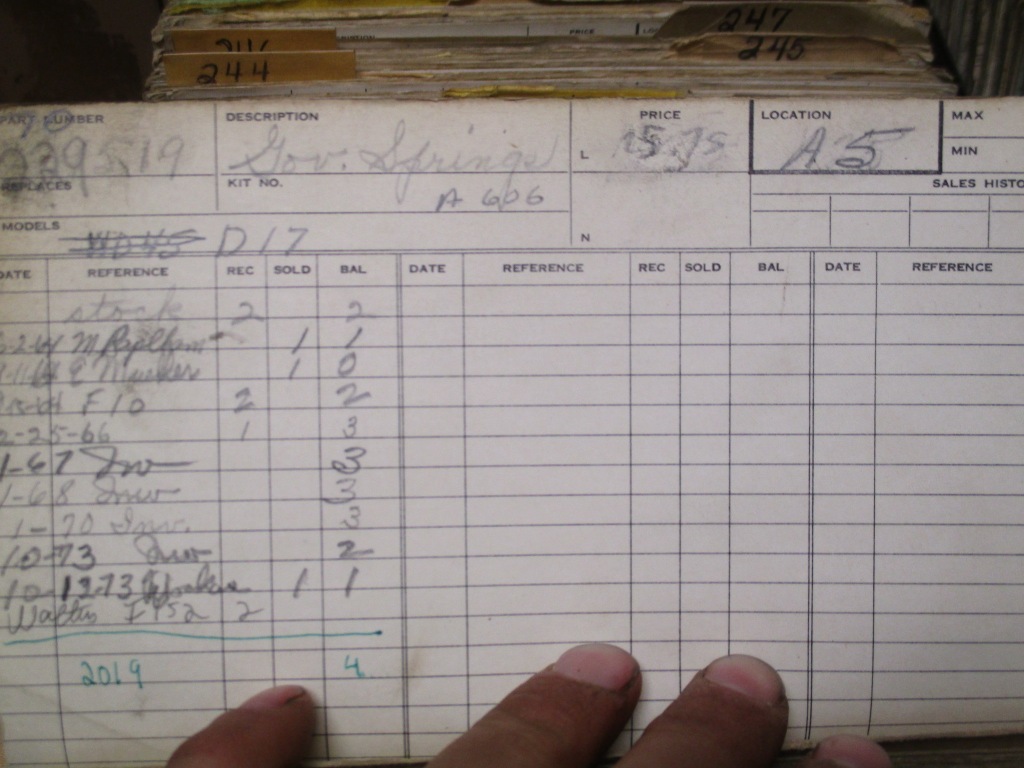 247
246
245
244
PRICE
PART NUMBER DESCRIPTION PRICE LOCATION MAX
70
229519 Gov. Springs L 15.75 A5 MIN
REPLACES KIT NO. SALES HISTO
A 606
MODELS N
WD45 D17
DATE REFERENCE REC SOLD BAL DATE REFERENCE REC SOLD BAL DATE REFERENCE
stock 2 2
2-64 M 1 1
11-64 E 1 0
64 F10 2 2
2-25-66 1 3
1-67 Inv 3
1-68 Inv 3
1-70 Inv. 3
10-73 Inv 2
10-12-73 1 1
F452 2
2019 4